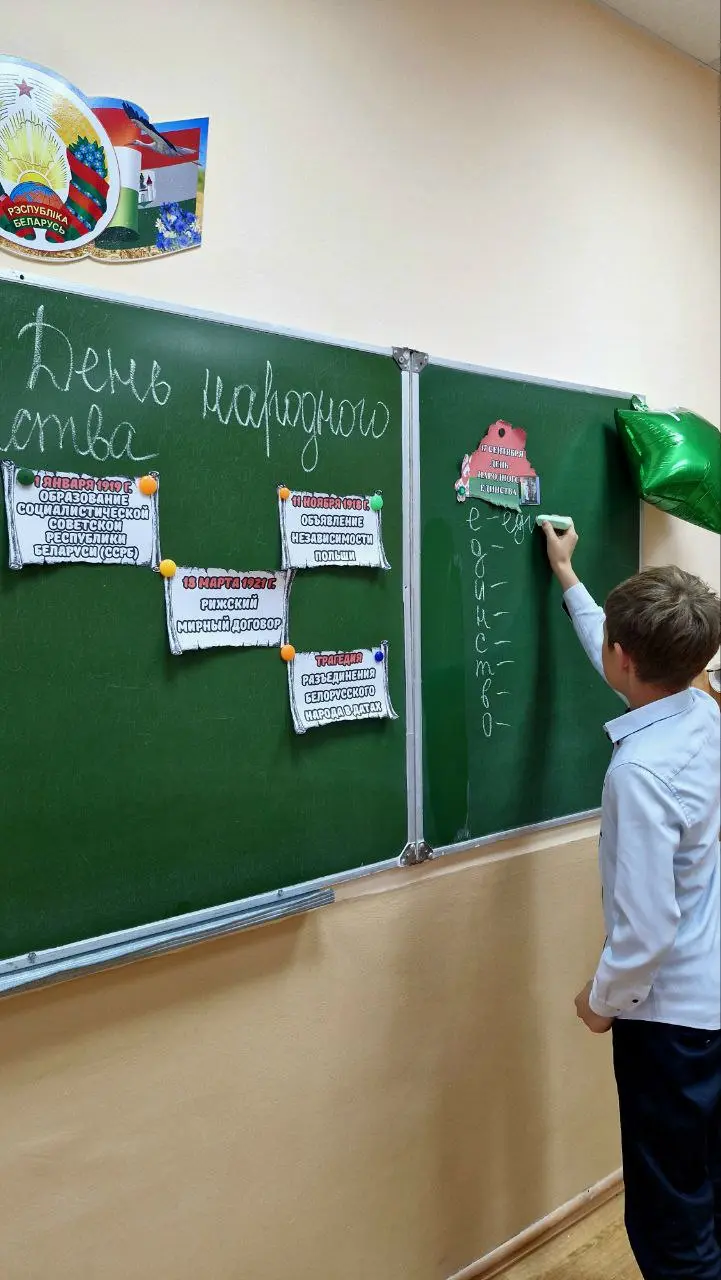 РЭСПУБЛІКА
БЕЛАРУСЬ
День народного
ства
1 ЯНВАРЯ 1919 Г.
ОБРАЗОВАНИЕ
СОЦИАЛИСТИЧЕСКОЙ
СОВЕТСКОЙ
РЕСПУБЛИКИ
БЕЛАРУСИ (ССРБ)
11 НОЯБРЯ 1918 Г.
ОБЪЯВЛЕНИЕ
НЕЗАВИСИМОСТИ
ПОЛЬШИ
18 МАРТА 1921 Г.
РИЖСКИЙ
МИРНЫЙ ДОГОВОР
ТРАГЕДИЯ
РАЗЪЕДИНЕНИЯ
БЕЛОРУССКОГО
НАРОДА В ДАТАХ
17 СЕНТЯБРЯ
ДЕНЬ
НАРОДНОГО
ЕДИНСТВА
е - еди
д -
и -
н -
с -
т -
в -
о -